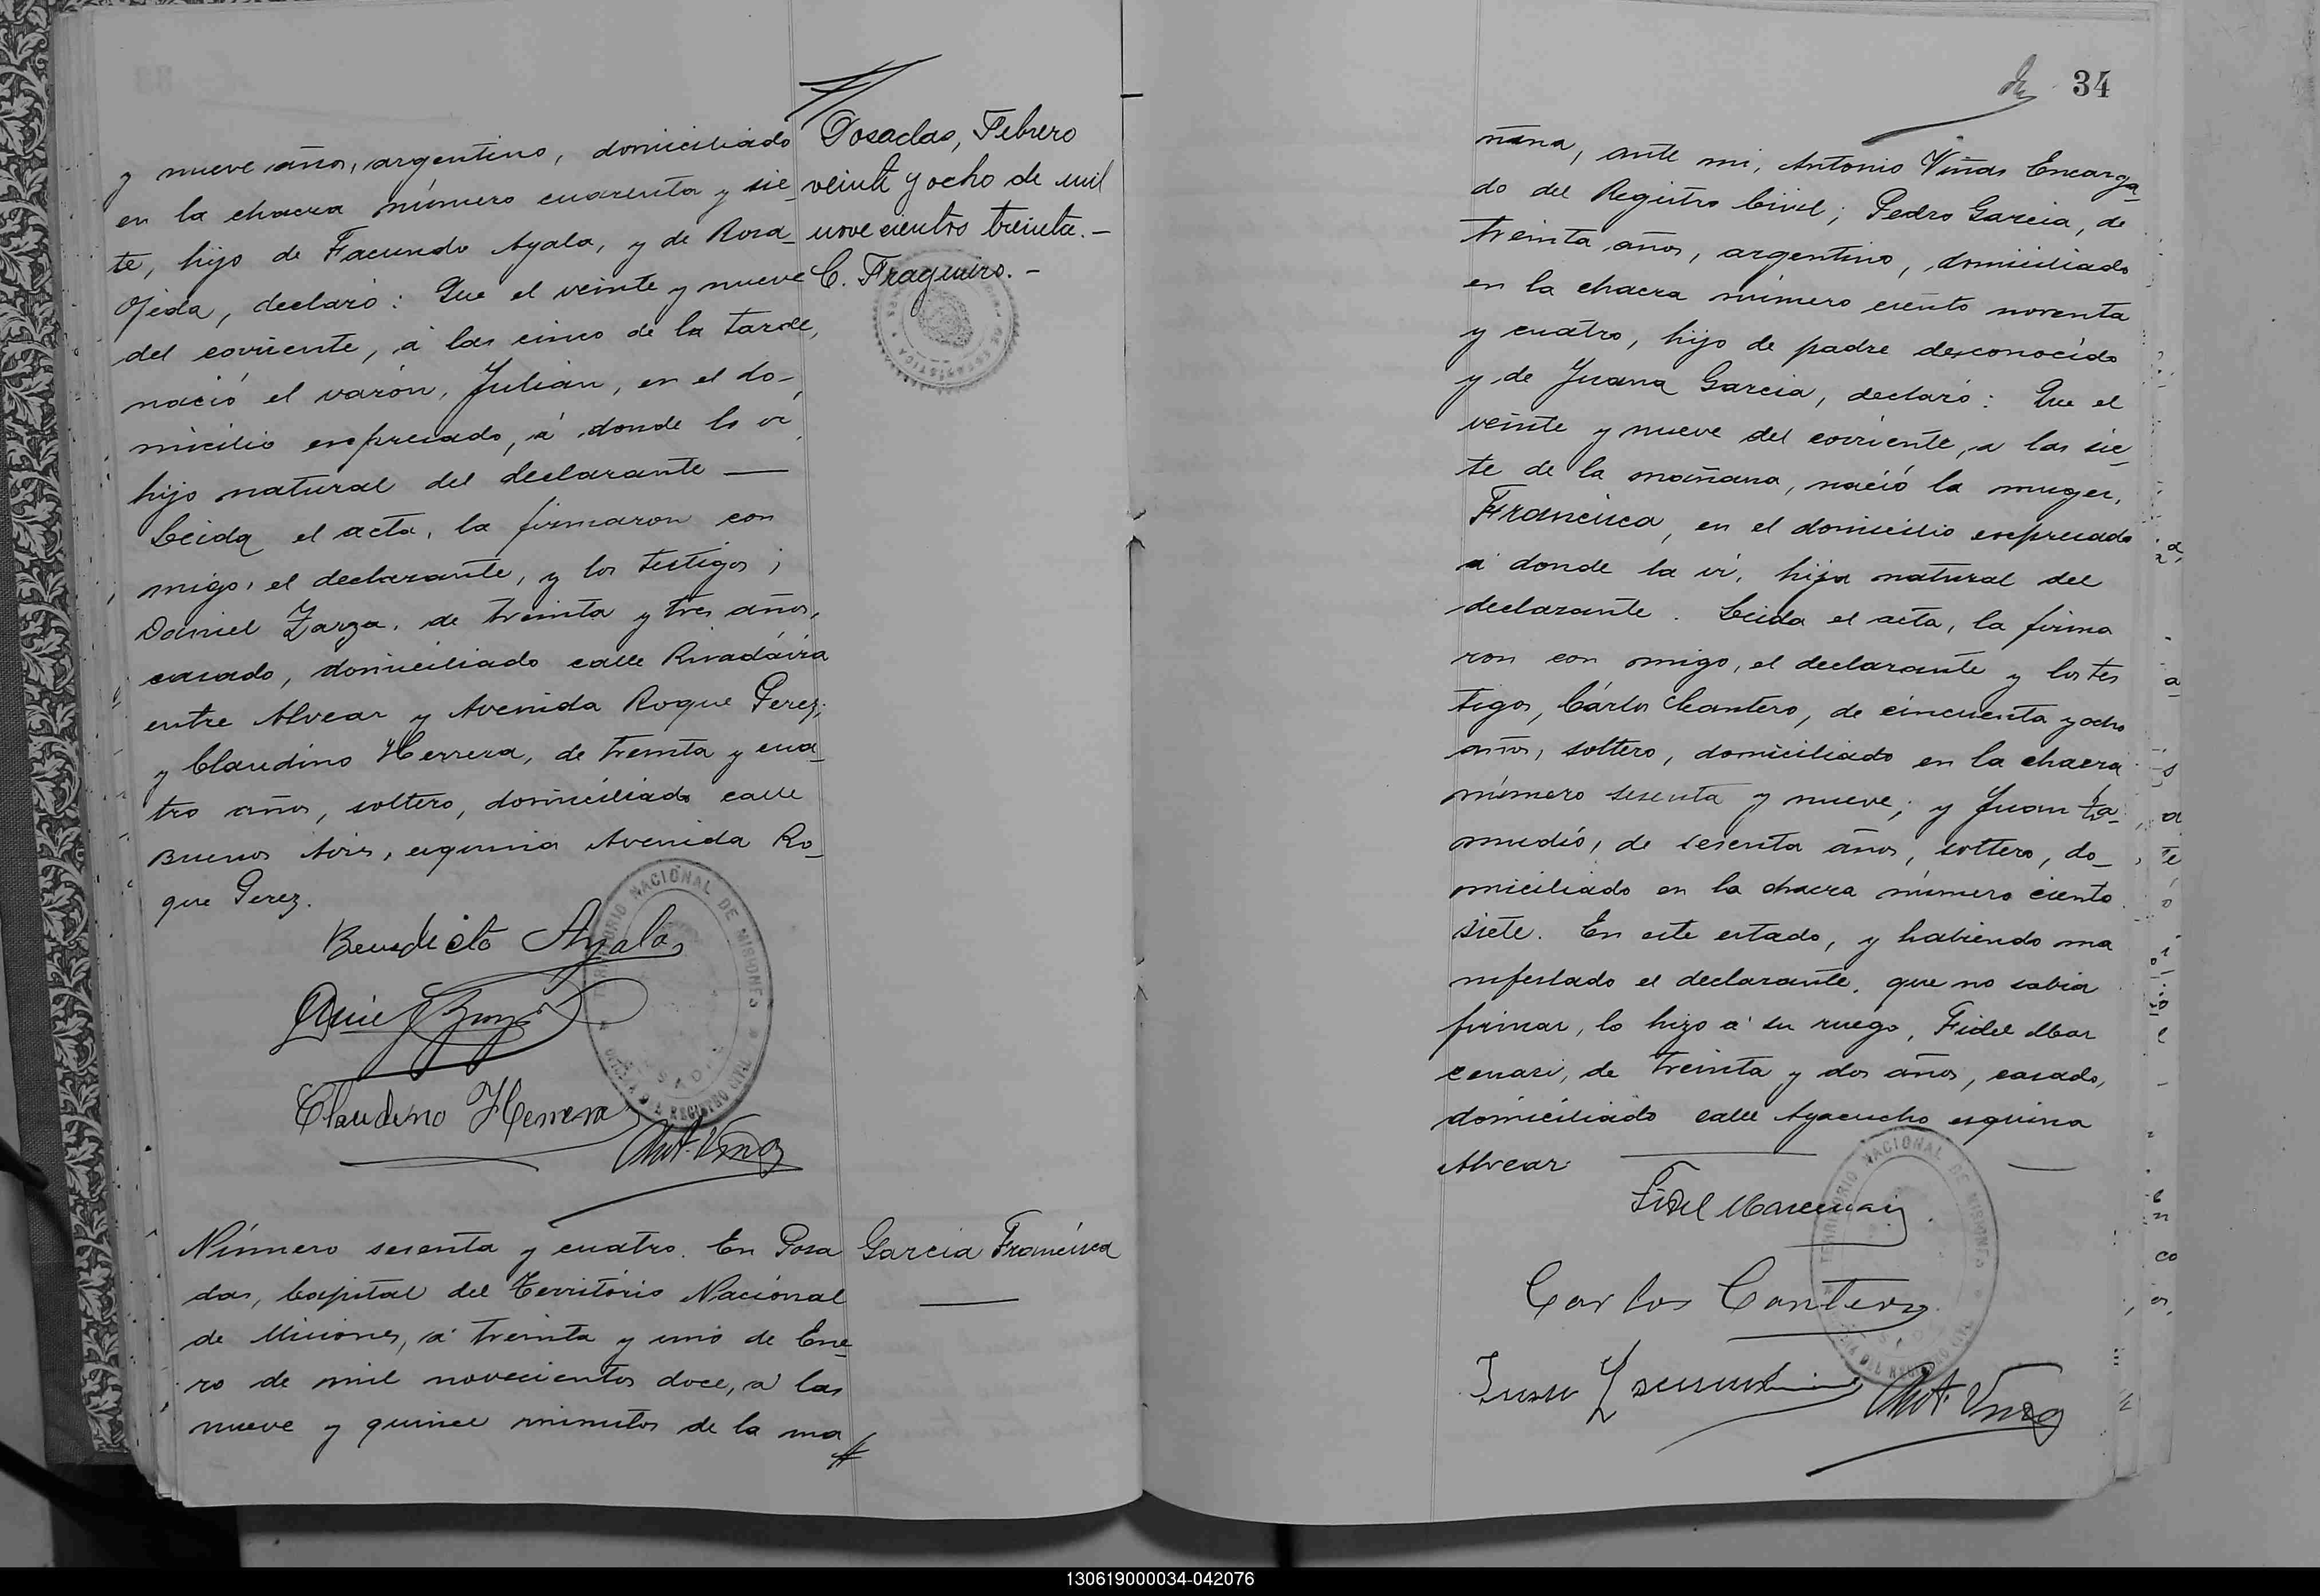 y nueve años, argentino, domiciliado
en la chacra número cuarenta y sie_
te, hijo de Facundo Ayala, y de Rosa_
Ojeda, declaró: Que el veinte y nueve
del corriente, á las cinco de la tarde,
nació el varón, Julián, en el do-
micilio espresado, á donde lo ví,
hijo natural del declarante —
Leida el acta, la firmaron con
migo, el declarante, y los testigos;
Daniel Zarza, de treinta y tres años,
casado, domiciliado calle Rivadavia
entre Alvear y Avenida Roque Perez,
y Claudino Herrera, de treinta y cua_
tro años, soltero, domiciliado calle
Buenos Aires, esquina Avenida Ro_
que Perez.
Benedicto Ayala
Claudino Herrera
Ant. Viñas
TERRITORIO NACIONAL DE MISIONES
OFICINA DEL REGISTRO CIVIL
POSADAS
Número sesenta y cuatro. En Posa
das, Capital del Territorio Nacional
de Misiones, á treinta y uno de Ene_
ro de mil novecientos doce, á las
nueve y quince minutos de la ma
Posadas, Febrero
veinte y ocho de mil
novecientos treinta.-
C. Fragueiro.-
Garcia Francisca
34
ñana, ante mi, Antonio Viñas Encarga_
do del Registro Civil; Pedro Garcia, de
treinta años, argentino, domiciliado
en la chacra número ciento noventa
y cuatro, hijo de padre desconocido
y de Juana Garcia, declaró: Que el
veinte y nueve del corriente, a las sie_
te de la mañana, nació la muger,
Francisca, en el domicilio espresado
á donde la ví, hija natural del
declarante. Leida el acta, la firma
ron con migo, el declarante y los tes
tigos, Cárlos Cantero, de cincuenta y ocho
años, soltero, domiciliado en la chacra
número sesenta y nueve; y Juan Za_
mudió, de sesenta años, soltero, do_
miciliado en la chacra número ciento
siete. En este estado, y habiendo ma
nifestado el declarante, que no sabia
firmar, lo hizo á su ruego, Fidel Mar
cenari, de treinta y dos años, casado,
domiciliado calle Ayacucho esquina
Alvear
Fidel Marcenari
Carlos Cantero
Juan Zamudio
Ant. Viñas
TERRITORIO NACIONAL DE MISIONES
OFICINA DEL REGISTRO CIVIL
130619000034-042076